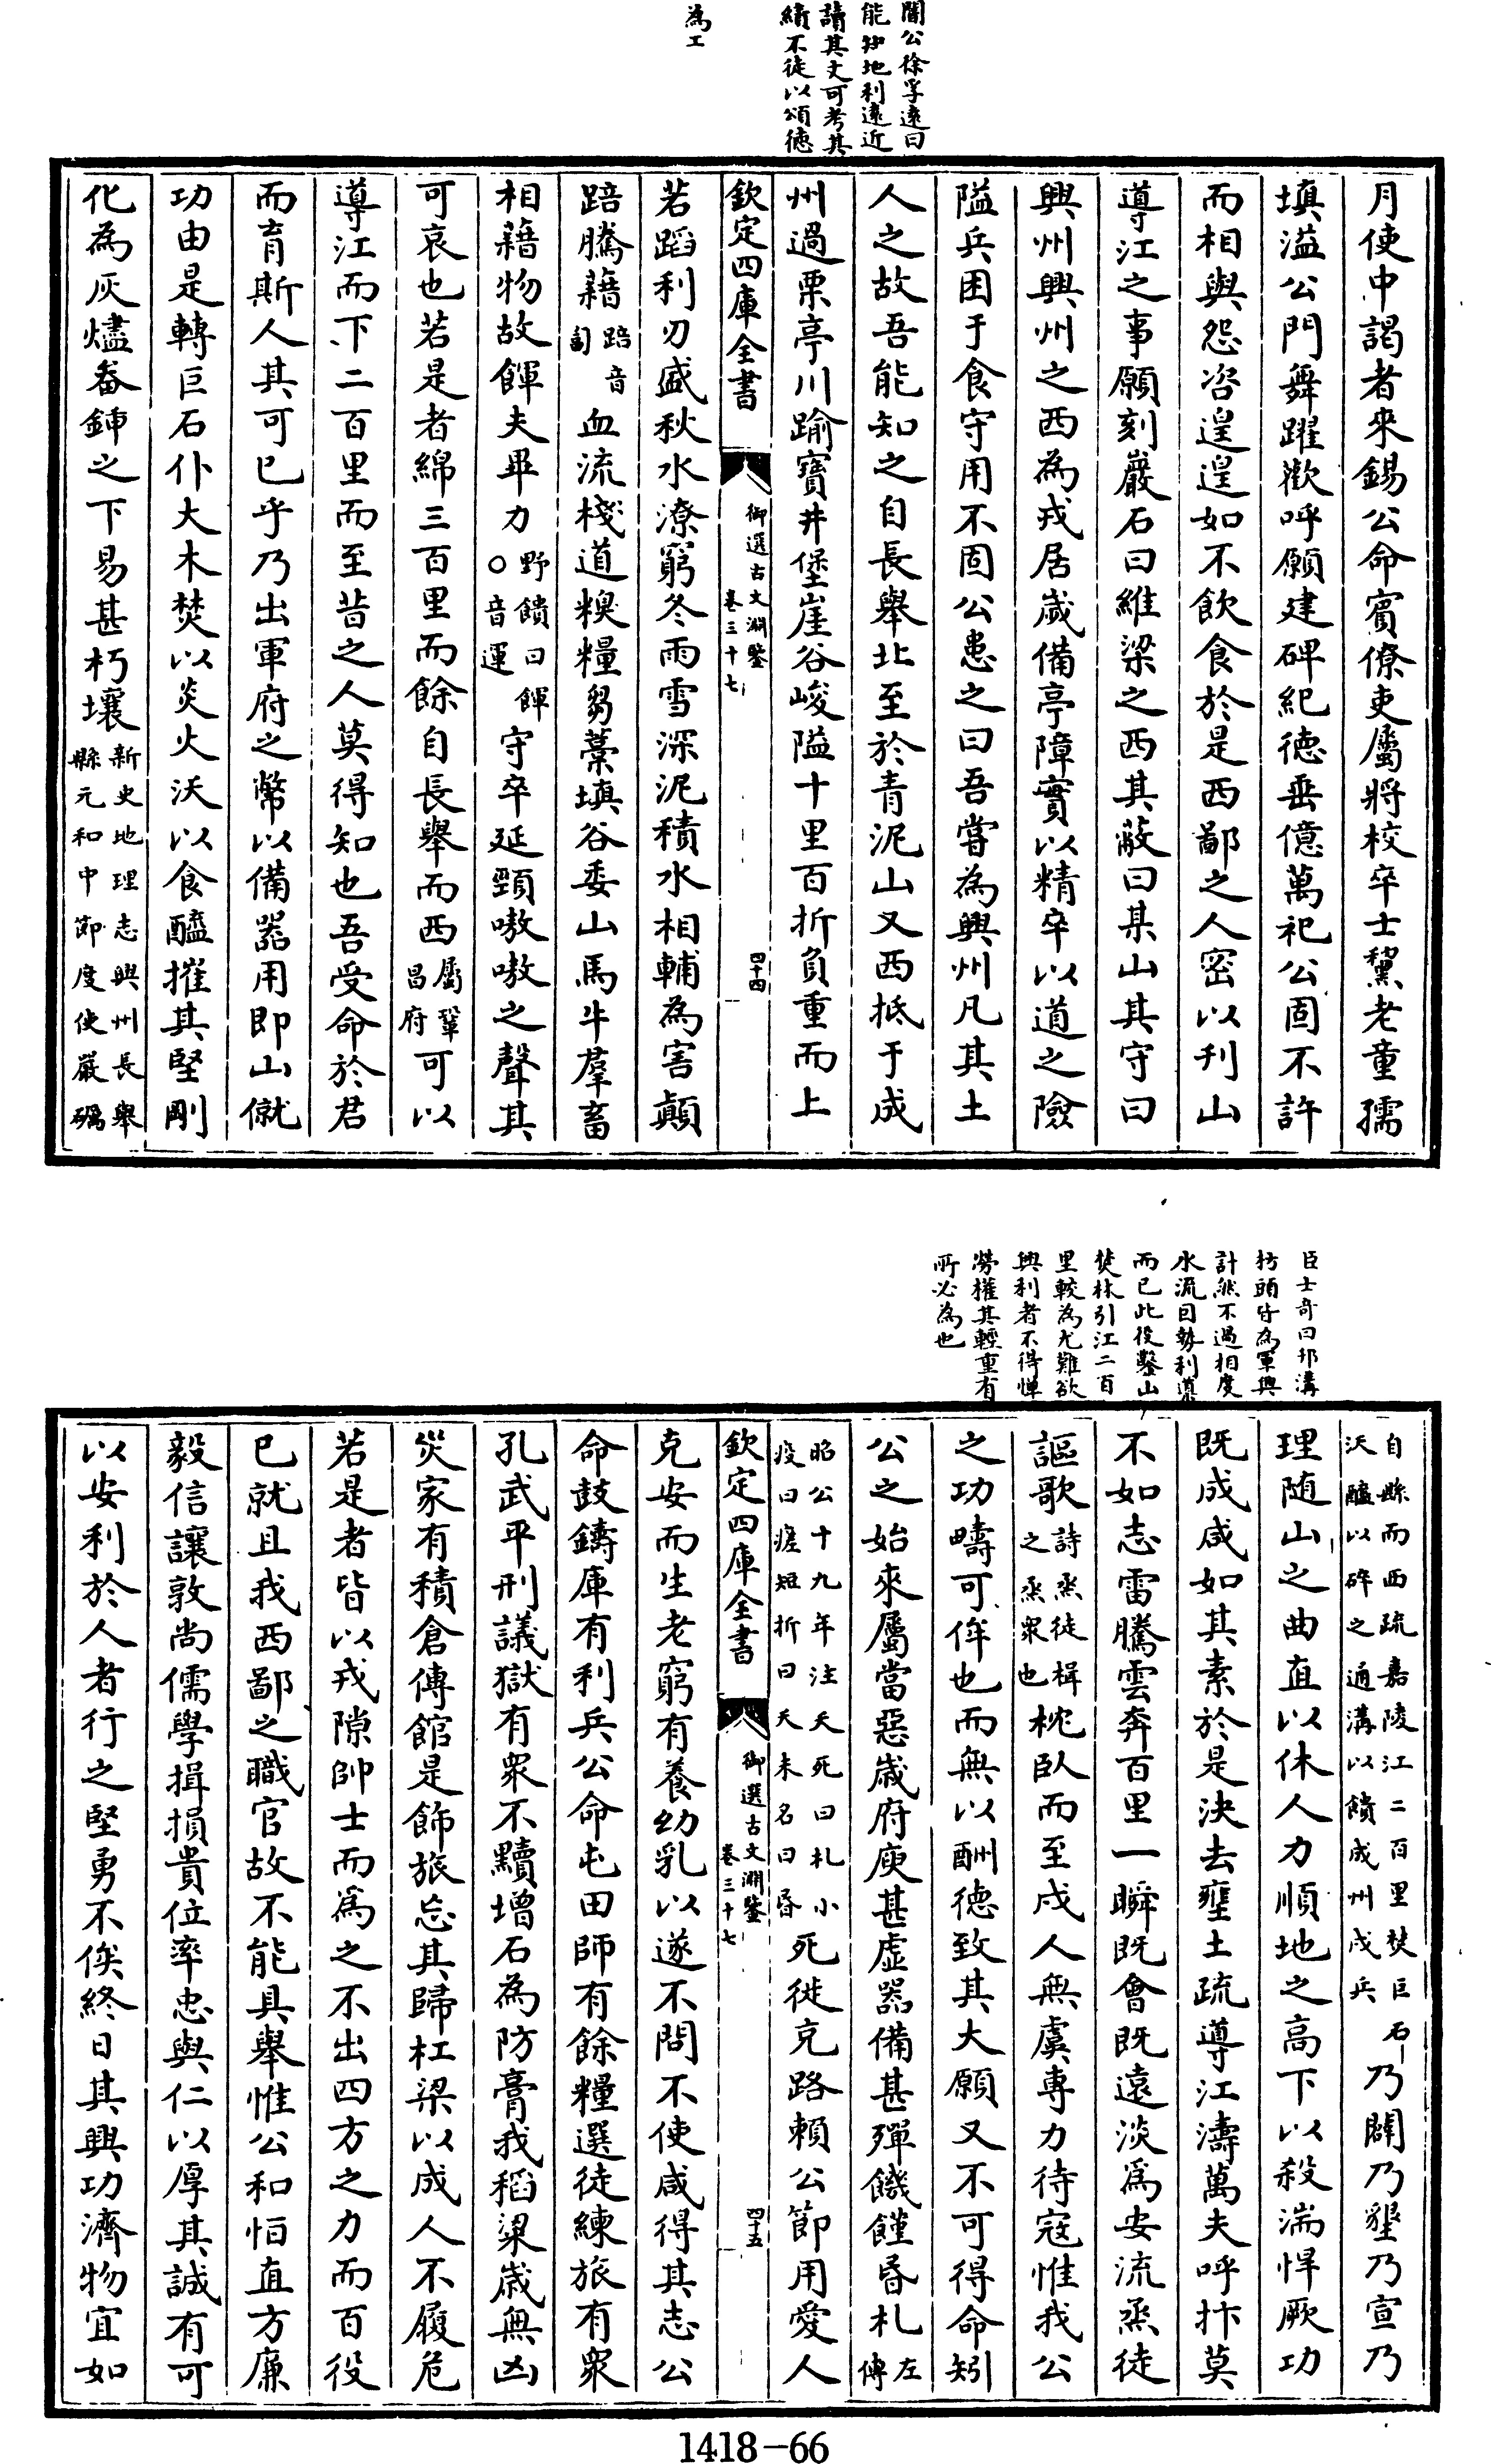 闇公徐孚遠曰
能知地利遠近
讀其文可考其
績不徒以頌徳
為工
月使中謁者來錫公命賓僚吏屬將校卒士黧老童孺
填溢公門舞躍歡呼願建碑紀徳垂億萬祀公固不許
而相與怨咨遑遑如不飲食於是西鄙之人密以刋山
導江之事願刻巖石曰維梁之西其蔽曰某山其守曰
興州興州之西為戎居歲備亭障實以精卒以道之險
隘兵困于食守用不固公患之曰吾嘗為興州凡其土
人之故吾能知之自長舉北至於青泥山又西抵于成
州過栗亭川踰寶井堡崖谷峻隘十里百折負重而上
欽定四庫全書
御選古文淵鑒
卷三十七
四十四
若蹈利刃盛秋水潦窮冬雨雪深泥積水相輔為害顛
踣騰藉踣音匐血流棧道糗糧芻藁填谷委山馬牛羣畜
相藉物故餫夫畢力野饋曰餫〇音運守卒延頸嗷嗷之聲其
可哀也若是者綿三百里而餘自長舉而西屬鞏昌府可以
導江而下二百里而至昔之人莫得知也吾受命於君
而育斯人其可已乎乃出軍府之幣以備器用即山僦
功由是轉巨石仆大木焚以炎火沃以食醯摧其堅剛
化為灰燼畚鍤之下易甚朽壤新史地理志興州長舉縣元和中節度使嚴礪
臣士竒曰邗溝
枋頭皆為軍興
計然不過相度
水流因勢利導
而已此役鑿山
焚林引江二百
里較為尤難欲
興利者不得憚
勞權其輕重有
所必為也
自縣而西疏嘉陵江二百里焚巨石沃醯以碎之通溝以饋成州戍兵乃闢乃墾乃宣乃
理随山之曲直以休人力順地之高下以殺湍悍厥功
既成咸如其素於是決去壅土疏導江濤萬夫呼抃莫
不如志雷騰雲奔百里一瞬既會既遠淡為安流烝徒
謳歌詩烝徒楫之烝衆也枕臥而至戍人無虞專力待寇惟我公
之功疇可侔也而無以酬徳致其大願又不可得命矧
公之始來屬當惡歲府庾甚虛器備甚殫饑饉昏札左傳
昭公十九年注夭死曰札小疫曰瘥短折曰夭未名曰昏死徙充路賴公節用愛人
欽定四庫全書
御選古文淵鑒
卷三十七
四十五
克安而生老窮有養幼乳以遂不問不使咸得其志公
命鼓鑄庫有利兵公命屯田師有餘糧選徒練旅有衆
孔武平刑議獄有衆不黷增石為防膏我稻粱歲無凶
災家有積倉傳館是飾旅忘其歸杠梁以成人不履危
若是者皆以戎隙帥士而為之不出四方之力而百役
已就且我西鄙之職官故不能具舉惟公和恒直方廉
毅信讓敦尚儒學揖損貴位率忠與仁以厚其誠有可
以安利於人者行之堅勇不俟終日其興功濟物宜如
1418-66